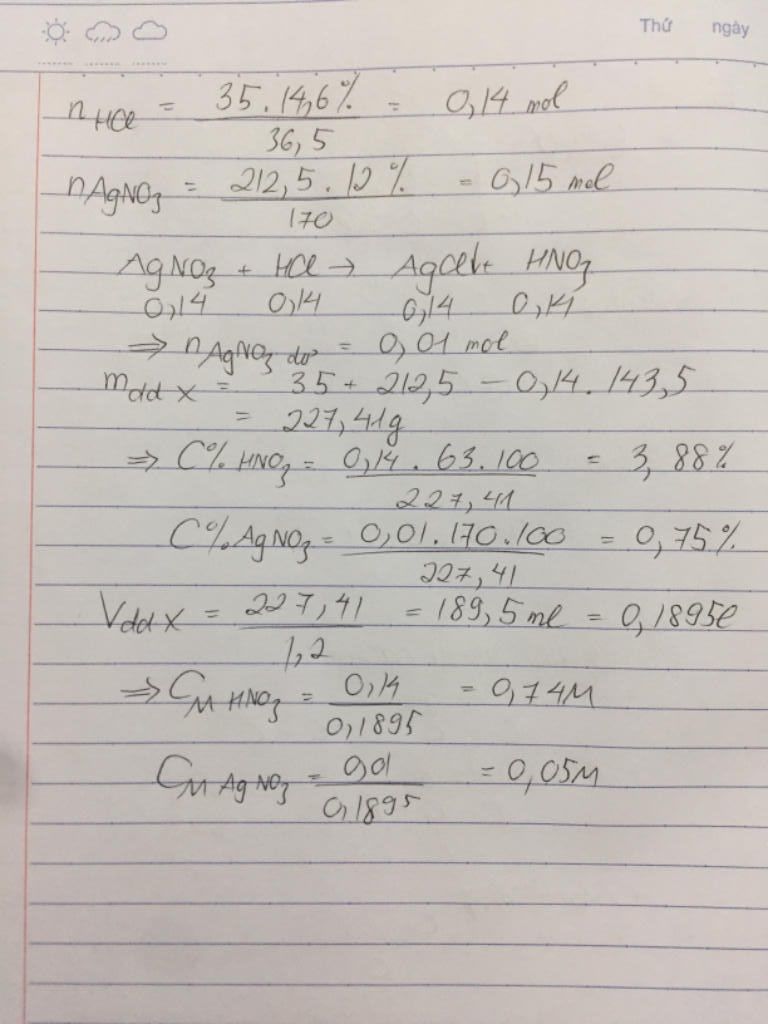 Thứ ngày
n HCl = 35.14,6% / 36,5 = 0,14 mol
n AgNO3 = 212,5.12% / 170 = 0,15 mol
AgNO3 + HCl → AgCl↓ + HNO3
0,14 0,14 0,14 0,14
⇒ n AgNO3 dư = 0,01 mol
m dd X = 35 + 212,5 – 0,14.143,5
= 227,41g
⇒ C% HNO3 = 0,14.63.100 / 227,41 = 3,88%
C% AgNO3 = 0,01.170.100 / 227,41 = 0,75%
V dd X = 227,41 / 1,2 = 189,5 ml = 0,1895l
⇒ CM HNO3 = 0,14 / 0,1895 = 0,74M
CM AgNO3 = 0,01 / 0,1895 = 0,05M